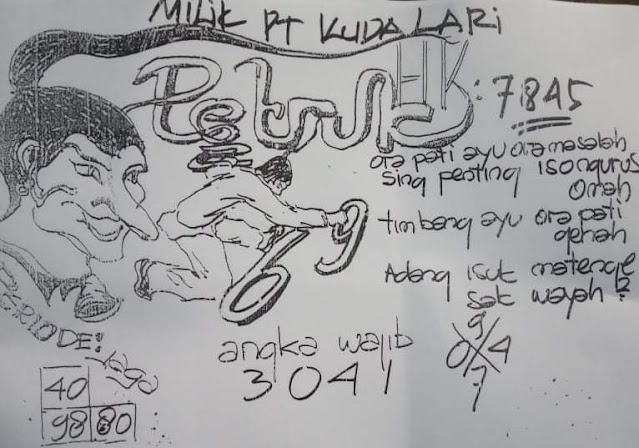 MILIK PT KUDA LARI
Petruk HK: 7845
ora pati ayu ora masalah
sing penting iso ngurus
omah
timbang ayu ora pati
genah
Adang isuk matenge
sak wayah?
69
PERIODE:
angka wajib
3041
9
0 4
7
40
98 80